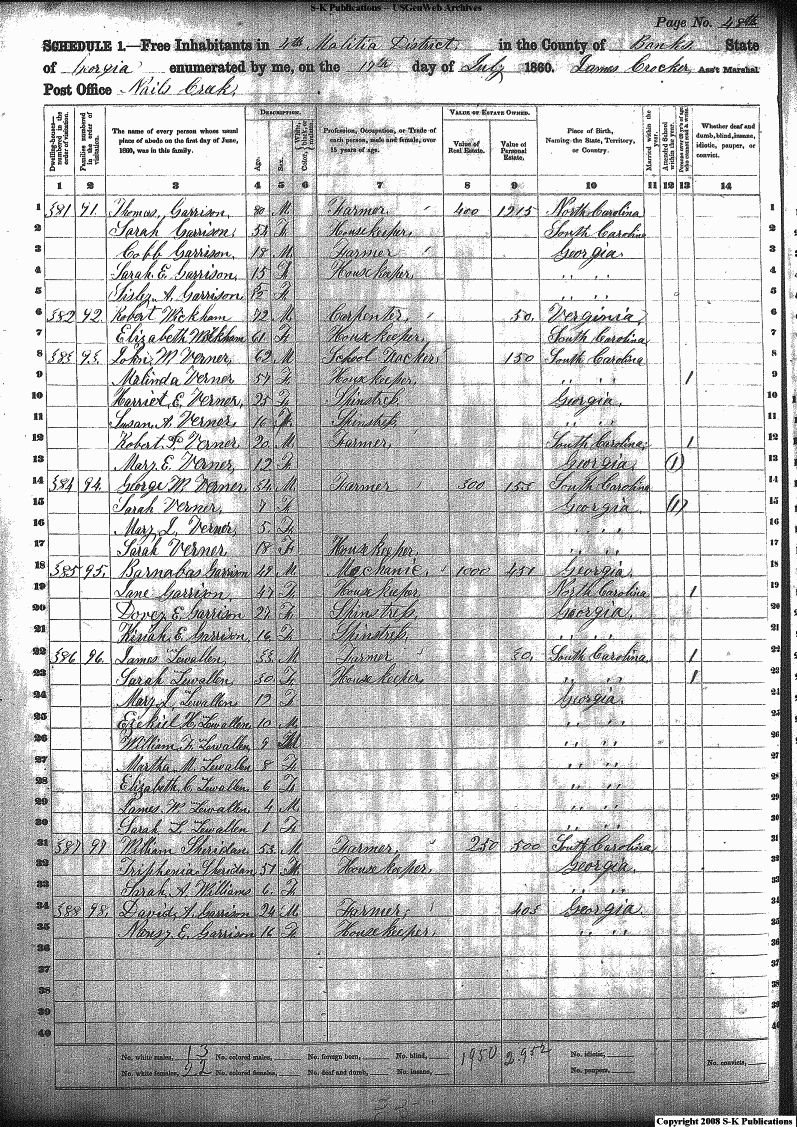 S-K Publications – USGenWeb Archives
Page No. 48th
SCHEDULE 1.—Free Inhabitants in 4th Malitia District in the County of Banks State
of Georgia enumerated by me, on the 19th day of July 1860. James Crocker, Ass't Marshal
Post Office Nails Creek
DESCRIPTION. VALUE OF ESTATE OWNED.
Dwelling-houses—numbered in the order of visitation. Families numbered in the order of visitation. The name of every person whose usual place of abode on the first day of June, 1860, was in this family. Age. Sex. Color, White, black, or mulatto. Profession, Occupation, or Trade of each person, male and female, over 15 years of age. Value of Real Estate. Value of Personal Estate. Place of Birth, Naming the State, Territory, or Country. Married within the year. Attended School within the year. Whether deaf and dumb, blind, insane, idiotic, pauper, or convict.
1 2 3 4 5 6 7 8 9 10 11 12 13 14
1 581 91. Thomas Garrison 80 M. Farmer 400 1215 North Carolina 1
2 Sarah Garrison 54 F. Housekeeper South Carolina 2
3 Cobb Garrison 18 M. Farmer Georgia 3
4 Sarah E. Garrison 15 F. Housekeeper " " 4
5 A. Garrison F. " " 5
6 582 92. Robert Wickham 72 M Carpenter 50. Verginia 6
7 Elizabeth Wickham 61 F. Housekeeper South Carolina 7
8 583 93. John M Verner 62 M School 150 South Carolina 8
9 Malinda Verner 54 F. Housekeeper " " 1 9
10 Harriet E. Verner 25 F. Spinstress Georgia 10
11 Susan A. Verner 16 Spinstress " " 11
12 Robert P. Verner 20 M Farmer South Carolina 1 12
13 Mary E. Verner 12 F. Georgia (1) 13
14 584 94. George W. Verner 54 M Farmer 300 155 South Carolina 14
15 Sarah Verner 7 F. Georgia (1) 15
16 Mary J. Verner 5. F. " " 16
17 Sarah Verner 18 F. Housekeeper " " 17
18 585 95. Barnabas Garrison 49 M. Mechanic 1000 451 Georgia 18
19 Jane Garrison 47 F. Housekeeper North Carolina 1 19
20 Dovey E. Garrison 22 F. Spinstress Georgia 20
21 Kiziah E. Garrison 16 F. Spinstress " " 21
22 586 96. James Lewallen 33. M. Farmer 30. South Carolina 1 22
23 Sarah Lewallen 30 F. Housekeeper " " 1 23
24 Mary J. Lewallen 12 F. Georgia 24
25 Ezekiel H. Lewallen 10 M. " " 25
26 William F. Lewallen 9 M " " 26
27 Martha M. Lewallen 8 F. " " 27
28 Elizabeth C. Lewallen 6 F. " " 28
29 James W. Lewallen 4 M. " " 29
30 Sarah L. Lewallen 1 F. " " 30
31 587 97 William Sherridan 53. M Farmer 250 500 South Carolina 31
32 Triphenia Sheridan 51 Housekeeper Georgia 32
33 Sarah A Williams 6. F. " " 33
34 588 98. David A. Garrison 24 M Farmer 405 Georgia 34
35 Nancy E. Garrison 16 F. Housekeeper " " 35
36 36
37 37
38 38
39 39
40 40
No. white males, 13 No. colored males, No. foreign born, No. blind, 1950 2952 No. idiotic,
No. white females, 22 No. colored females, No. deaf and dumb, No. insane, No. paupers, No. convicts,
Copyright 2008 S-K Publications